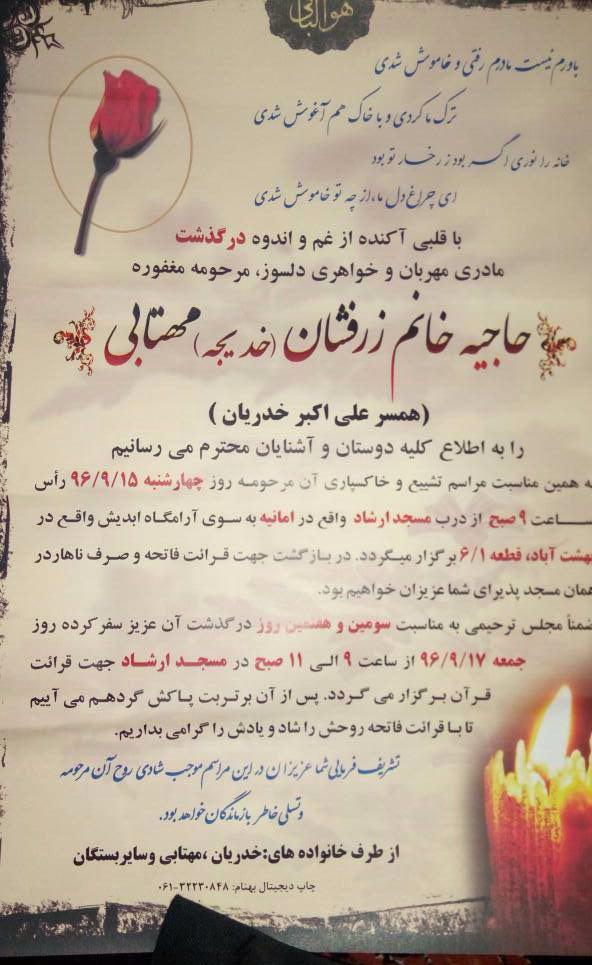 هوالباقی
باورم نیست مادرم رفتی و خاموش شدی
ترک ما کردی و با خاک هم آغوش شدی
خانه را نوری اگر بود ز رخسار تو بود
ای چراغ دل ما، از چه تو خاموش شدی
با قلبی آکنده از غم و اندوه درگذشت
مادری مهربان و خواهری دلسوز، مرحومه مغفوره
حاجیه خانم زرفشان (خدیجه) مهتابی
(همسر علی اکبر خدریان )
را به اطلاع کلیه دوستان و آشنایان محترم می رسانیم
به همین مناسبت مراسم تشییع و خاکسپاری آن مرحومه روز چهارشنبه ۹۶/۹/۱۵ رأس
ساعت ۹ صبح از درب مسجد ارشاد واقع در امانیه به سوی آرامگاه ابدیش واقع در
بهشت آباد، قطعه ۶/۱ برگزار میگردد. در بازگشت جهت قرائت فاتحه و صرف ناهار در
همان مسجد پذیرای شما عزیزان خواهیم بود.
ضمناً مجلس ترحیمی به مناسبت سومین و هفتمین روز درگذشت آن عزیز سفر کرده روز
جمعه ۹۶/۹/۱۷ از ساعت ۹ الی ۱۱ صبح در مسجد ارشاد جهت قرائت
قرآن برگزار می گردد. پس از آن بر تربت پاکش گردهم می آییم
تا با قرائت فاتحه روحش را شاد و یادش را گرامی بداریم.
تشریف فرمایی شما عزیزان در این مراسم موجب شادی روح آن مرحومه
و تسلی خاطر بازماندگان خواهد بود.
از طرف خانواده های:خدریان ،مهتابی وسایربستگان
چاپ دیجیتال بهنام: ۳۲۲۳۰۸۴۸-۰۶۱